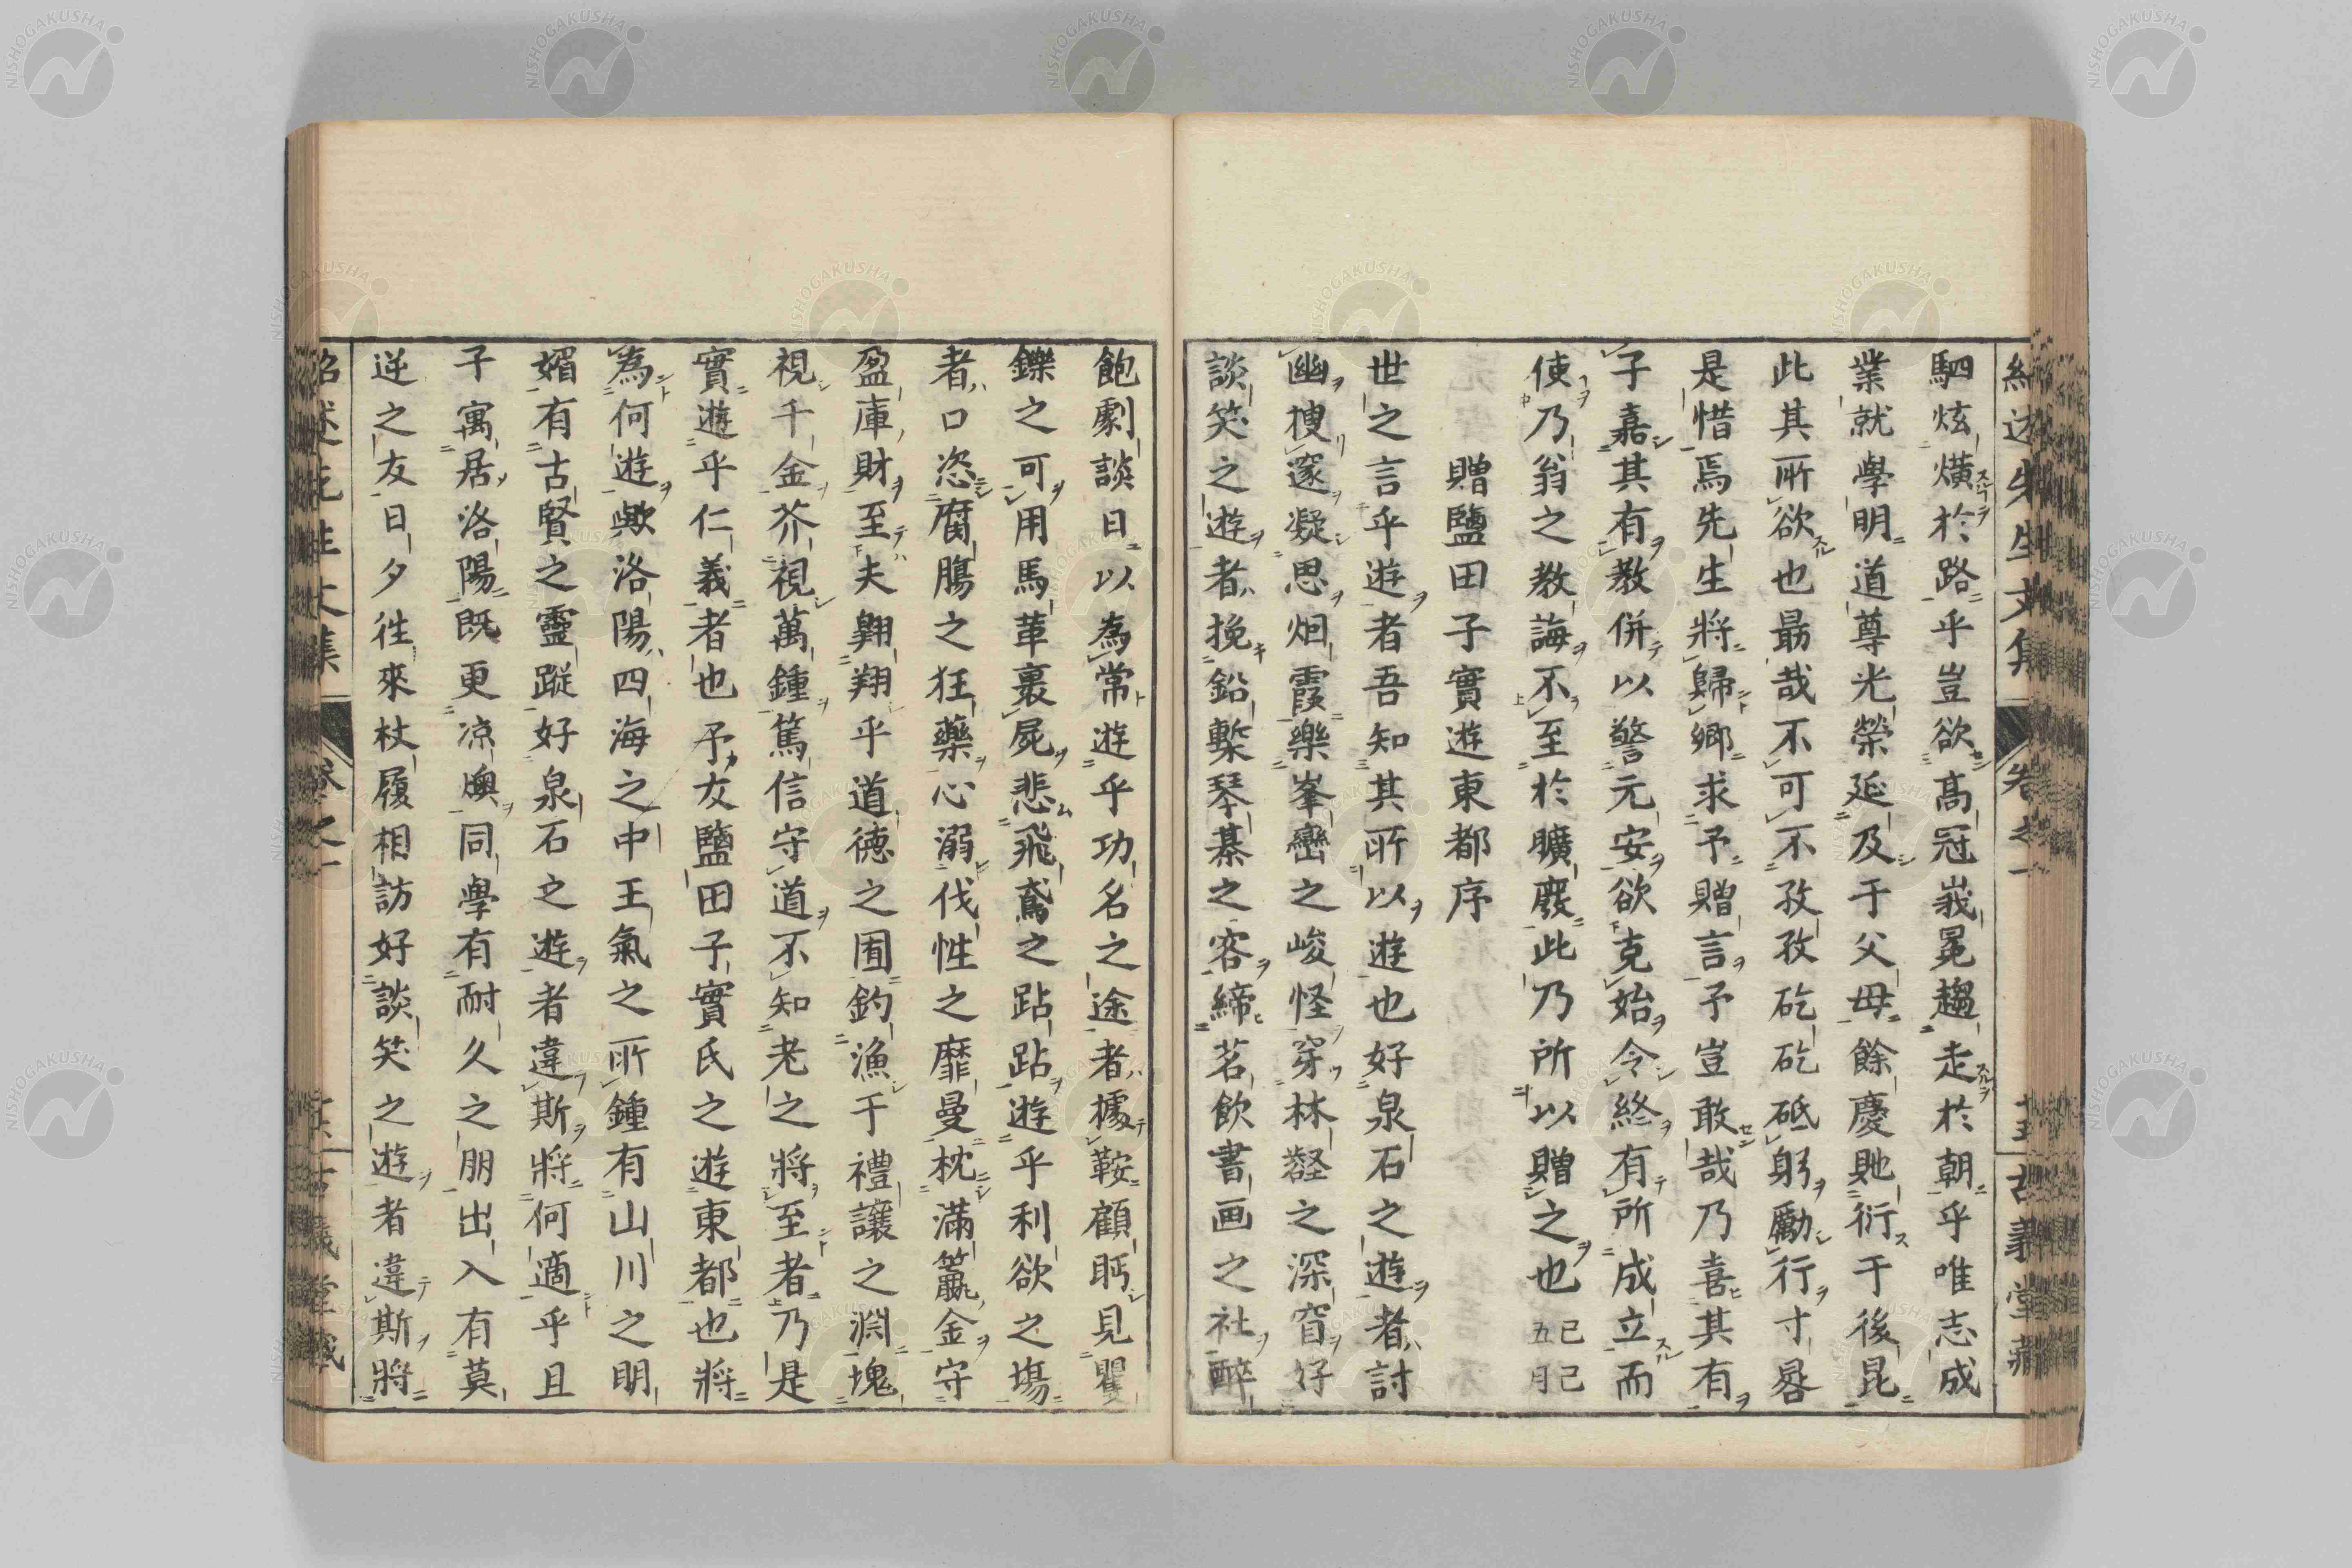 駟炫熿於路乎豈欲高冠峩冕趨走於朝乎唯志成
業就學明道尊光榮延及于父母餘慶貤衍于後昆
此其所欲也最哉不可不孜孜矻矻砥躬勵行寸晷
是惜焉先生將歸鄉求予贈言予豈敢哉乃喜其有
子嘉其有教併以警元安欲克始令終有所成立而
使乃翁之教誨不至於曠廢此乃所以贈之也己巳五月
贈鹽田子實遊東都序
世之言乎遊者吾知其所以遊也好泉石之遊者討
幽搜邃凝思烟霞樂峯巒之峻怪穿林壑之深窅好
談笑之遊者挽鉛槧琴棊之客締茗飲書画之社醉
飽劇談日以為常遊乎功名之途者據鞍顧眄見矍
鑠之可用馬革裹屍悲飛鳶之跕跕遊乎利欲之場
者口恣腐腸之狂藥心溺伐性之靡曼枕滿籯金守
盈庫財至夫翱翔乎道德之囿釣漁于禮讓之淵塊
視千金芥視萬鍾篤信守道不知老之將至者乃是
實遊乎仁義者也予友鹽田子實氏之遊東都也將
為何遊歟洛陽四海之中王氣之所鍾有山川之明
媚有古賢之靈蹤好泉石之遊者違斯將何適乎且
子寓居洛陽既更凉燠同學有耐久之朋出入有莫
逆之友日夕往來杖履相訪好談笑之遊者違斯將
紹述先生文集 卷之一 古義堂藏